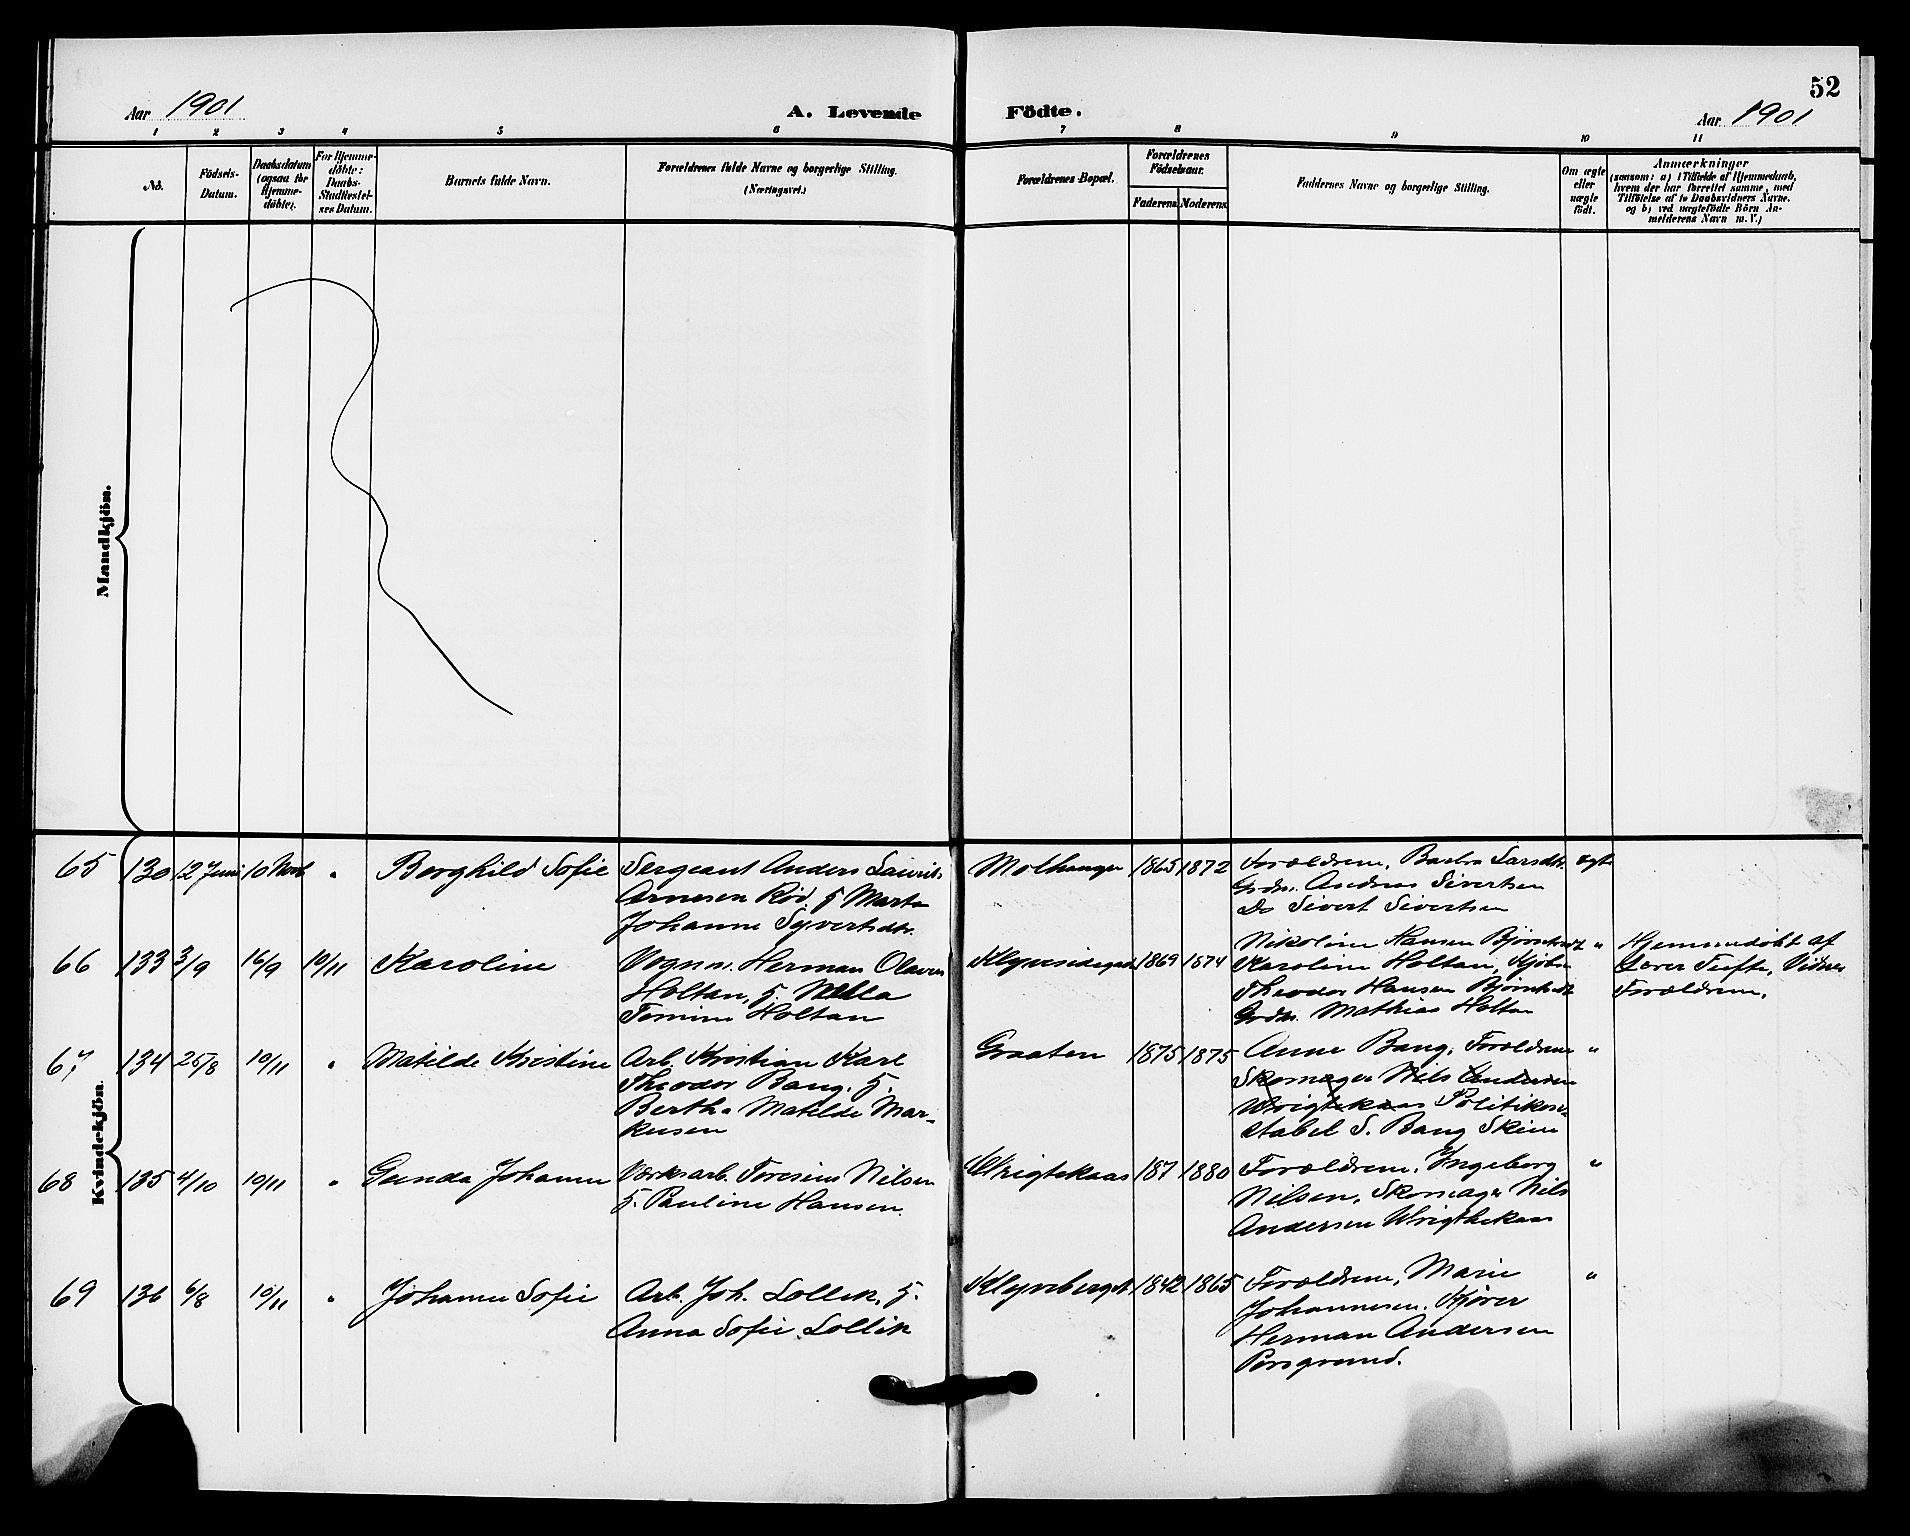 52
Aar 1901
A. Levende Födte.
Aar 1901
1 2 3 4 5 6 7 8 9 10 11
No.
Födsels-Datum.
Daabsdatum (ogsaa for Hjemme-döbte).
For Hjemme-döbte: Daabs-Stadfæstel-ses Datum.
Barnets fulde Navn.
Forældrenes fulde Navne og borgerlige Stilling.
(Næringsvei.)
Forældrenes Bopæl.
Forældrenes Födselsaar.
Faderens. Moderens.
Faddernes Navne og borgerlige Stilling.
Om ægte eller uægte födt.
Anmærkninger
(saasom: a) i Tilfælde af Hjemmedaab, hvem der har forrettet samme, med Tilföielse af to Daabsvidners Navne, og b) ved uægtefödte Börn An-melderens Navn m. V.)
Mandkjön.
Kvindekjön.
65 130 12 Juni 10 Novb " Borghild Sofie
Sergeant Anders Laurits
Arnesen Rød, H. Marta
Johanne Syvertsdtr.
Molhaugen 1865 1872
Forældrene, Barbro Larsdtr.
Grdm. Andreas Sivertsen
Do Sivert Sivertsen
ægte
66 133 3/9 16/9 10/11 Karoline
Vognm. Herman Olaves
Holtan, H. Nilla
Tomine Holtan
1869 1874
Nikoline Hansen Bjørntvedt
Karoline Holtan, Kjøbm
Theodor Hansen Bjørntvedt
Grdm. Mathias Holtan
"
Hjemmedøbt af
Lærer Tufte, Vidner
Forældrene.
67 134 25/8 10/11 " Matilde Kristine
Arb. Kristian Karl
Theodor Bang, H.
Bertha Matilde Mar-
kusen
Graaten 1875 1875
Anne Bang, Forældrene
Skomager Nils Andersen
Wrigtekaas Politikon-
stabel S. Bang Skien
"
68 135 4/10 10/11 " Gunda Johanne
Værksarb. Toresius Nilsen
H. Pauline Hansen.
Wrigtekaas 187 1880
Forældrene, Ingeborg
Nilsen, Skomager Nils
Andersen Wrigthekaas
"
69 136 6/8 10/11 " Johanne Sofie
Arb. Joh. Lollik, H.
Anna Sofie Lollik
Klyveberget 1842 1865
Forældrene, Marie
Johannesen, Kjører
Herman Andersen
Porsgrund.
"